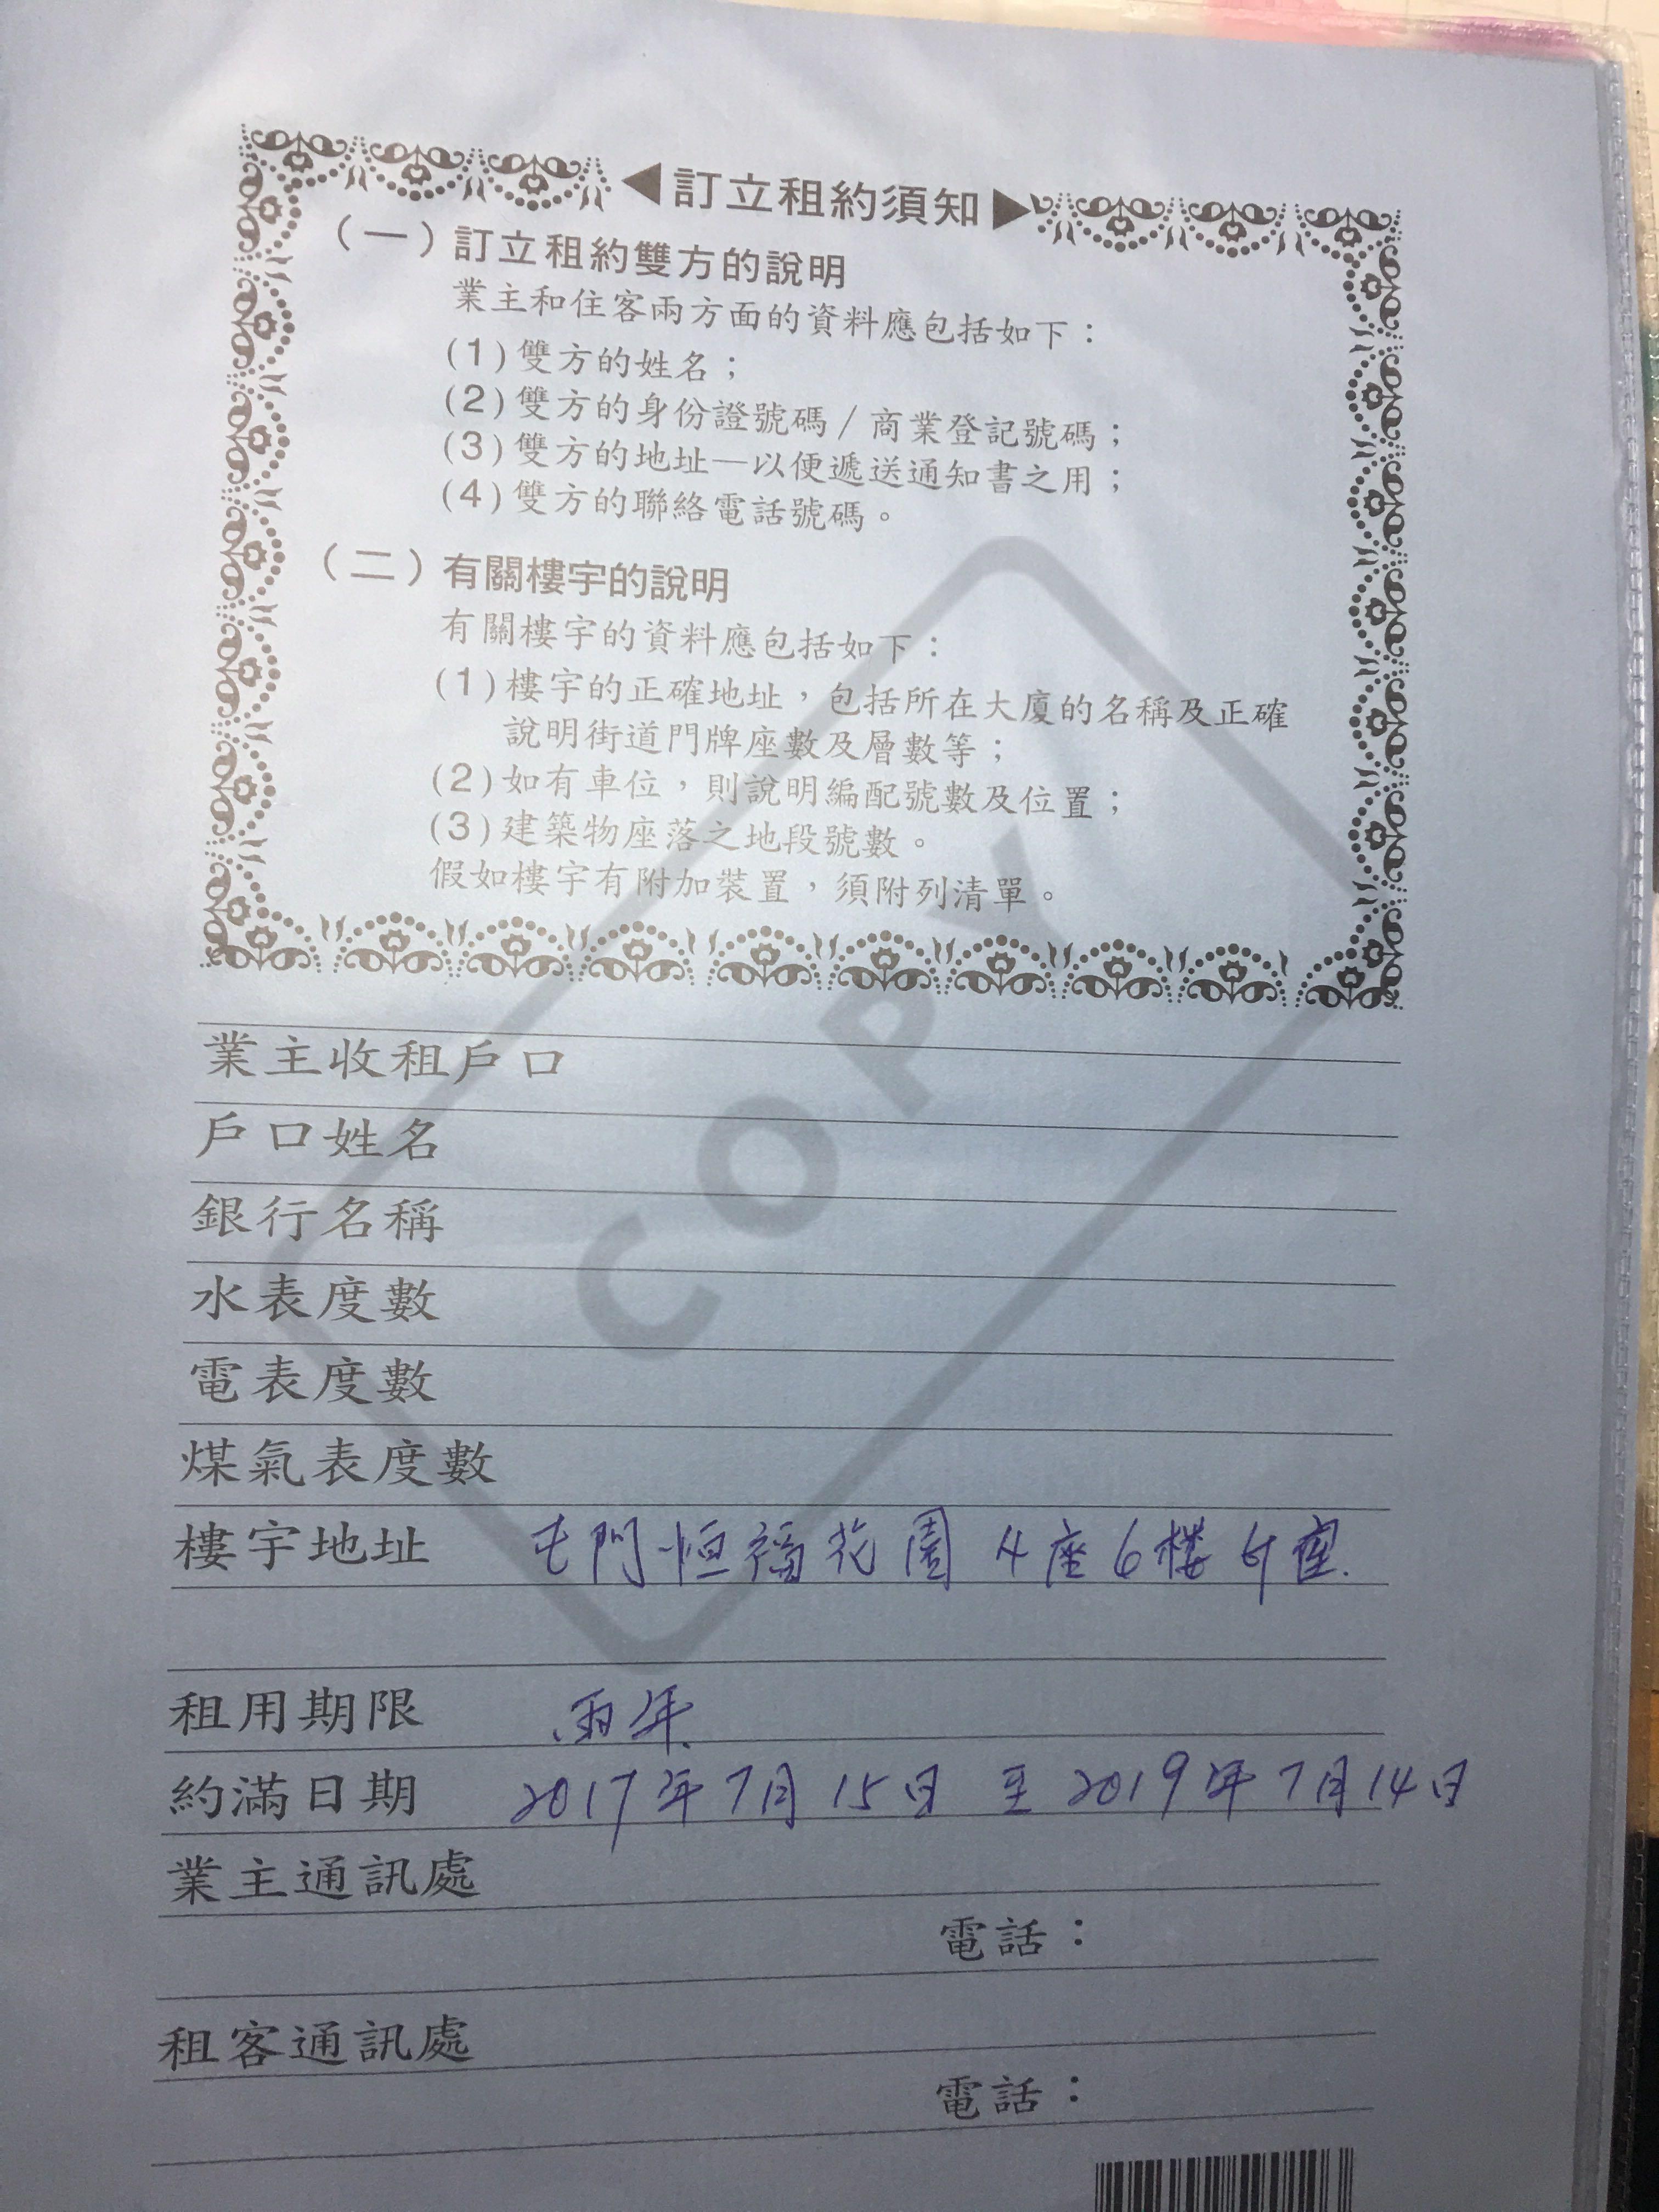 ◀訂立租約須知▶
（一）訂立租約雙方的說明
業主和住客兩方面的資料應包括如下：
(1)雙方的姓名；
(2)雙方的身份證號碼／商業登記號碼；
(3)雙方的地址—以便遞送通知書之用；
(4)雙方的聯絡電話號碼。
（二）有關樓宇的說明
有關樓宇的資料應包括如下：
(1)樓宇的正確地址，包括所在大廈的名稱及正確
說明街道門牌座數及層數等；
(2)如有車位，則說明編配號數及位置；
(3)建築物座落之地段號數。
假如樓宇有附加裝置，須附列清單。
COPY
業主收租戶口
戶口姓名
銀行名稱
水表度數
電表度數
煤氣表度數
樓宇地址 屯門恒福花園 4座6樓 室.
租用期限 兩年.
約滿日期 2017年7月15日 至 2019年7月14日
業主通訊處
電話：
租客通訊處
電話：